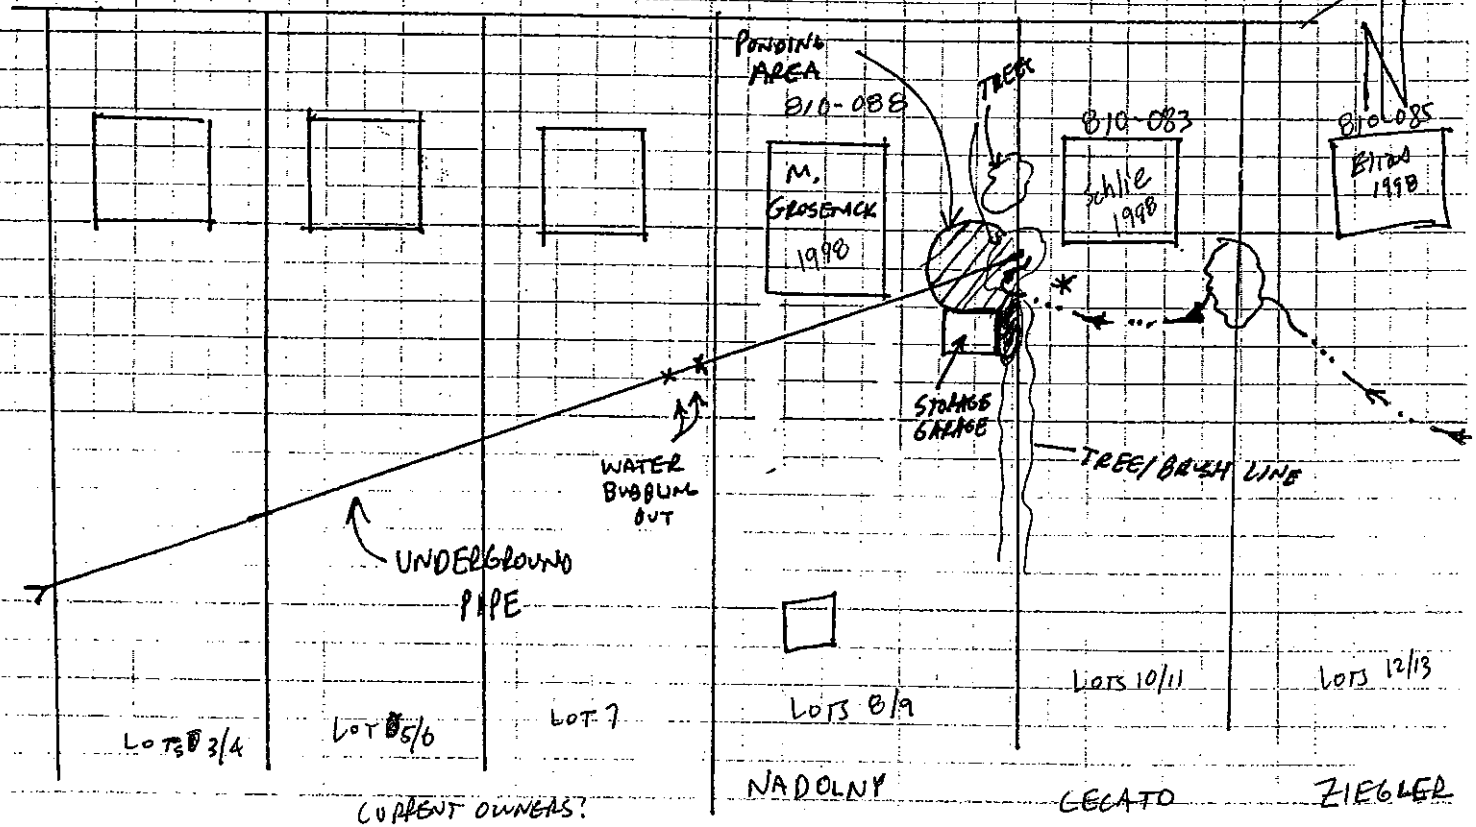 PONDING
AREA
810-088
TREES
N
810-083
810-085
M.
GROSENICK
1998
Schlie
1998
Elias
1998
STORAGE
GARAGE
WATER
BUBBLING
OUT
TREE/BRUSH LINE
UNDERGROUND
PIPE
LOTS 3/4
LOT 5/6
LOT 7
LOTS 8/9
LOTS 10/11
LOTS 12/13
CURRENT OWNERS?
NADOLNY
CECATO
ZIEGLER